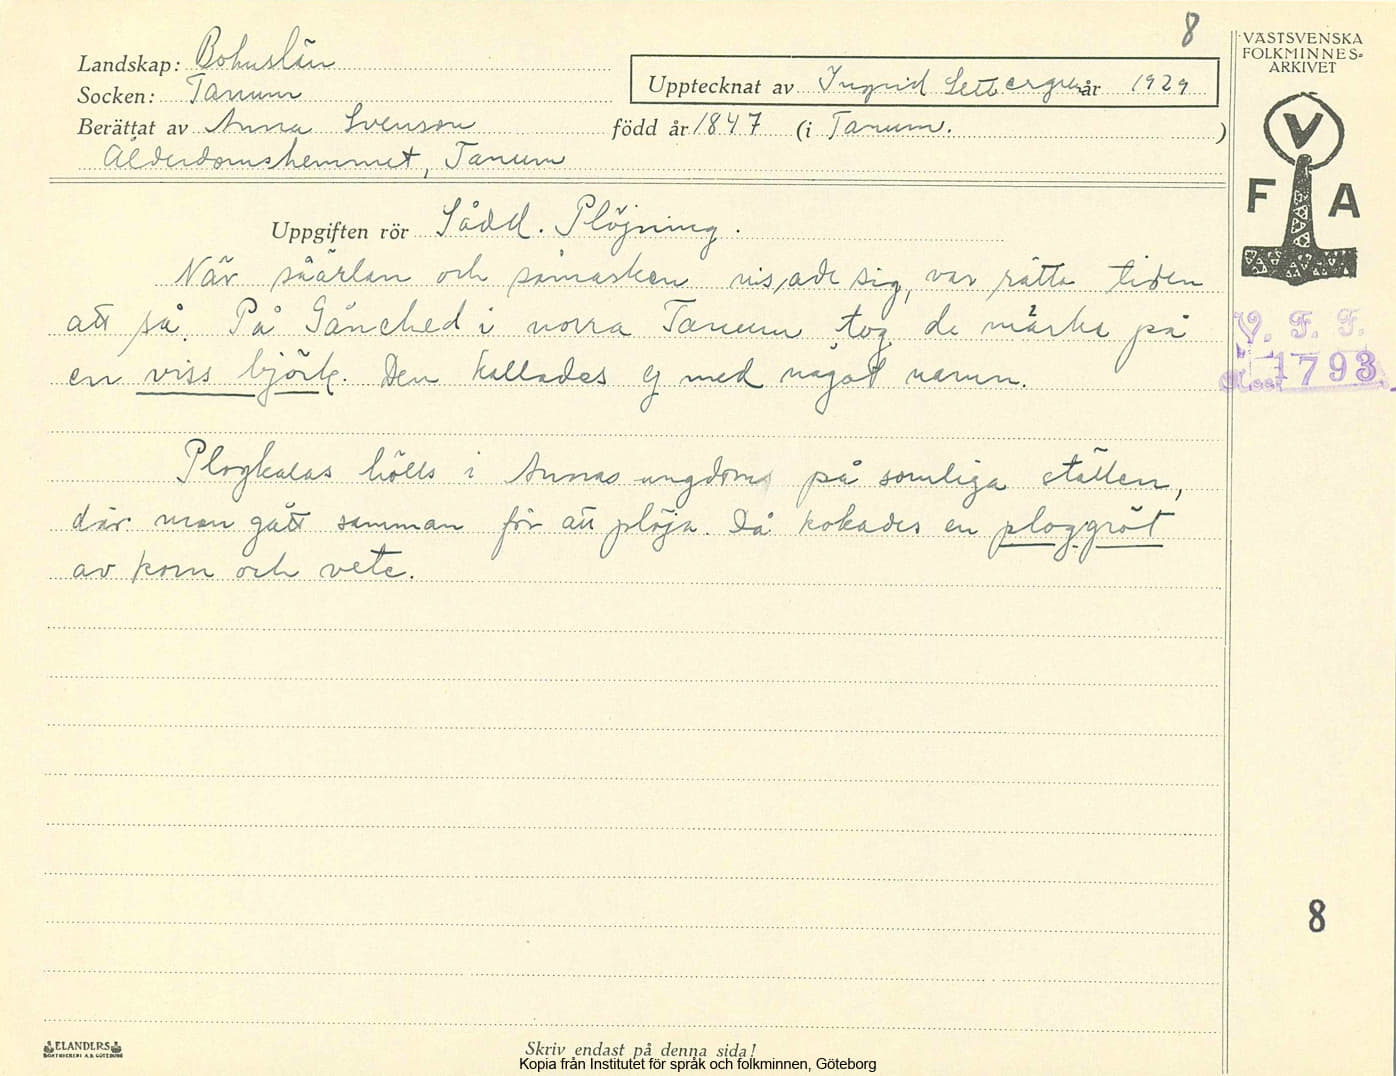 8
Landskap: Bohuslän
Socken: Tanum
Upptecknat av Ingrid Settergren år 1929
Berättat av Anna Svenson född år 1847 (i Tanum. )
Ålderdomshemmet, Tanum
Uppgiften rör Sådd. Plöjning.
När såärlan och såmasken visade sig, var rätta tiden
att så. På i norra Tanum tog de märke på
en viss björk. Den kallades ej med något namn.
Plogkalas hölls i Annas ungdom på somliga ställen,
där man gått samman för att plöja. Då kokades en ploggröt
av korn och vete.
VÄSTSVENSKA
FOLKMINNES=
ARKIVET
V
F A
V. F. F.
1793
8
ELANDERS
BOKTRYCKERI A.B. GÖTEBORG
Skriv endast på denna sida!
Kopia från Institutet för språk och folkminnen, Göteborg